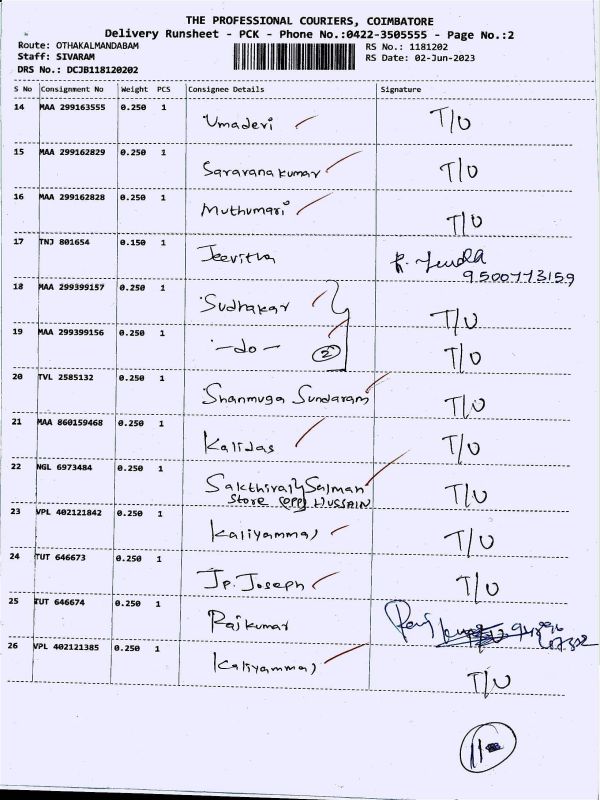 THE PROFESSIONAL COURIERS, COIMBATORE
Delivery Runsheet - PCK - Phone No.:0422-3505555 - Page No.:2
Route: OTHAKALMANDABAM RS No.: 1181202
Staff: SIVARAM RS Date: 02-Jun-2023
DRS No.: DCJB118120202
S No Consignment No Weight PCS Consignee Details Signature
14 MAA 299163555 0.250 1 Umadevi T/O
15 MAA 299162829 0.250 1 Saravana kumar T/O
16 MAA 299162828 0.250 1 Muthumari T/O
17 TNJ 801654 0.150 1 Jeevitha R.
9500773159
18 MAA 299399157 0.250 1 Sudhakar T/O
19 MAA 299399156 0.250 1 -do- 2 T/O
20 TVL 2585132 0.250 1 Shanmuga Sundaram T/O
21 MAA 860159468 0.250 1 Kalidas T/O
22 NGL 6973484 0.250 1 Sakthivel Salman T/O
Store (OPP) HUSSAIN
23 VPL 402121842 0.250 1 Kaliyammal T/O
24 TUT 646673 0.250 1 Jp. Joseph T/O
25 TUT 646674 0.250 1 Rajkumar
26 VPL 402121385 0.250 1 Kaliyammal T/O
11